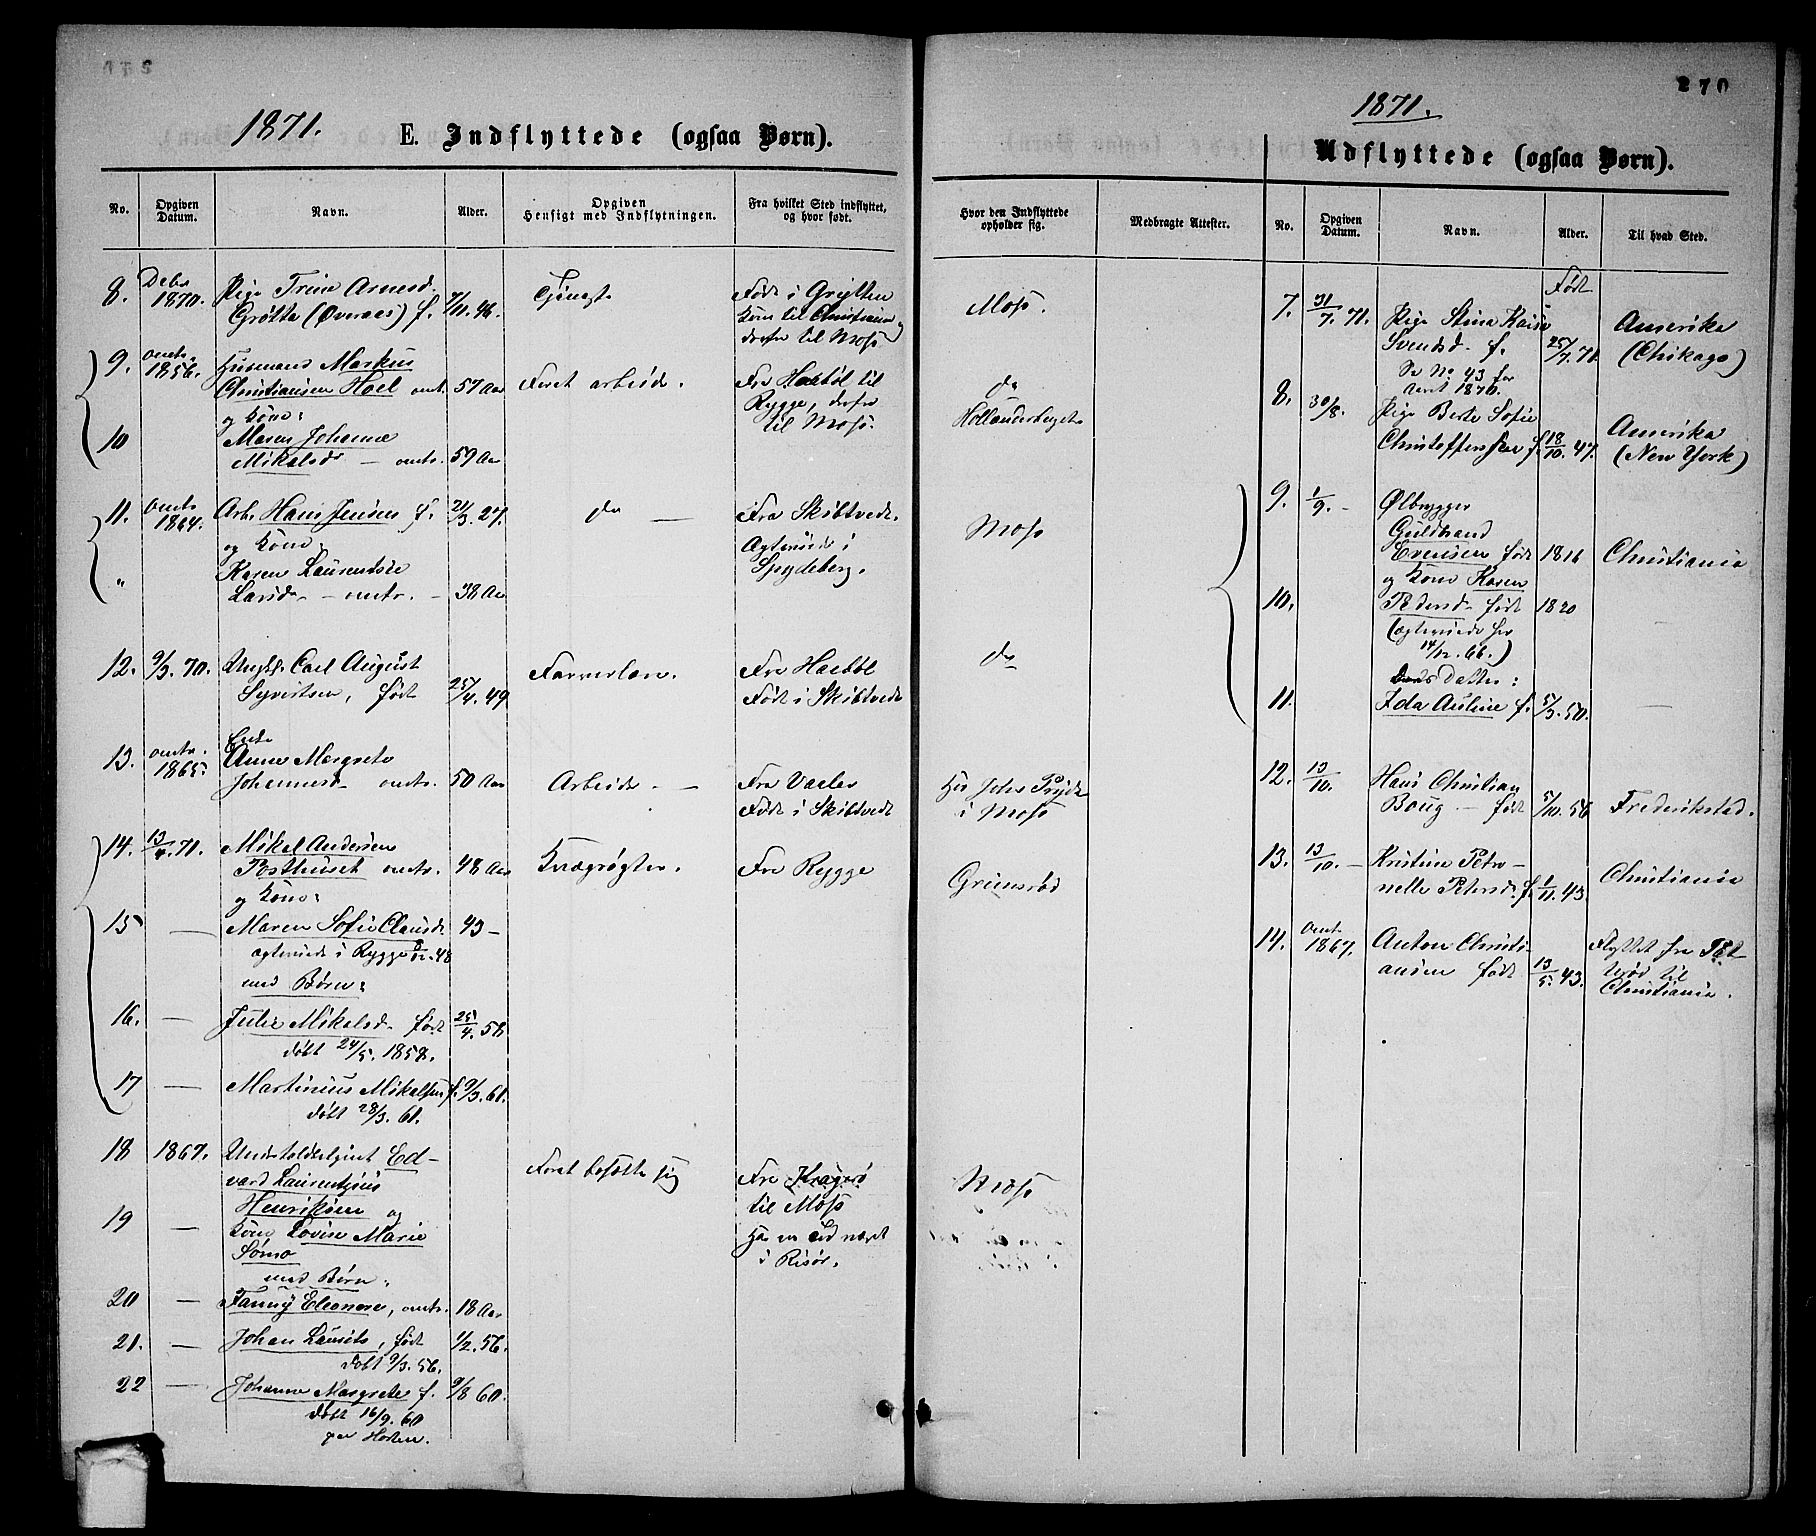 270
1871.
E. Indflyttede (ogsaa Børn).
No.
Opgiven Datum.
Navn.
Alder.
Opgiven Hensigt med Indflytningen.
Fra hvilket Sted indflyttet, og hvor født.
Hvor den Indflyttede opholder sig.
Medbragte Attester.
8. Debr 1870. Pige Trine Arnesd. 7/11. 48. Tjeneste Født i Grytten Moss.
Grøtta (Øveraas) f. kom til Christiania
derfra til Moss
9. omtr. 1856. Husmand Markus Fra Haabøl til do
Christiansen Hoel omtr. 57 Aar Faaet arbeide. Rygge, derfra Hollænderbaget
og Kone: til Moss.
10 Maren Johanne
Mikalsdr — omtr. 59 Aar
11. omtr 1864. Arb. Hans Jensen f. 21/3. 27. do — Fra Skibtvedt. Moss
og Kone Agtviede i
" Karen Laurentse Spydeberg.
Larsdr — omtr. — 38 Aar
12. 9/3. 70. Ungk. Carl August Farverlære. Fra Haabøl do
Syvertsen, født 25/4. 49 Født i Skibtvedt
13. omtr. 1865. Enke
Anne Margrete Fra Vaaler Hos Johs Pryds
Johannesd. omtr. 50 Aar Arbeide. — Født i Skibtvedt i Moss
14. 13/4. 71. Mikel Andersen
Posthuset omtr. 48 Aar Kvægrøgter. Fra Rygge Grimsrød
og Kone:
15 — Maren Sofie Clausd. 43 —
agtviede i Rygge 48
med Børn:
16. — Julie Mikalsd. født 25/4. 58
døbt 24/5. 1858.
17 — Martinius Mikalsen f. 9/3. 61.
døbt 28/3. 61.
18 1867. Ed-
vard Laurentzius Faaet besætte sig Fra Kragerø Moss
Henriksen og til Moss
19 — Kone Lovise Marie
Sømo i Risør.
med Børn:
20 — Fanny Eleonore, omtr. 18 Aar
21. — Johan Lauritz, født 1/2. 56.
døbt 9/3. 56.
22 — Johanne Margrete f. 9/8 60.
døbt 16/9. 60
paa Horten.
1871.
Udflyttede (ogsaa Børn).
No.
Opgiven Datum.
Navn.
Alder.
Til hvad Sted.
Født
7. 31/7. 71. Pige Stina Kaisa Amerika
Svendsd. f. 25/7. 71. (Chikago)
Se No 43 for
Aaret 1870.
8. 30/8. Pige Berte Sofie Amerika
Christoffersen f. 18/10. 47. (New York)
9. 1/9. — Ølbrygger
Guldbrand
Evensen født 1816 Christiania
og Kone Karen
10. Pedersd. født 1820 —
(agtviede her
14/12. 66.)
Datter:
11. Ida Auline f. 5/3. 50. —
12. 13/10. Hans Christian
Boug — født 5/10. 56 Frederikstad.
13. 13/10. — Kristine Petro-
nelle Petersd. f. 1/11. 43. Christiania
14. omt. 1867. Anton Christi- Flyttet fra Pet-
ansen født 13/5. 43. erød til
Christiania.